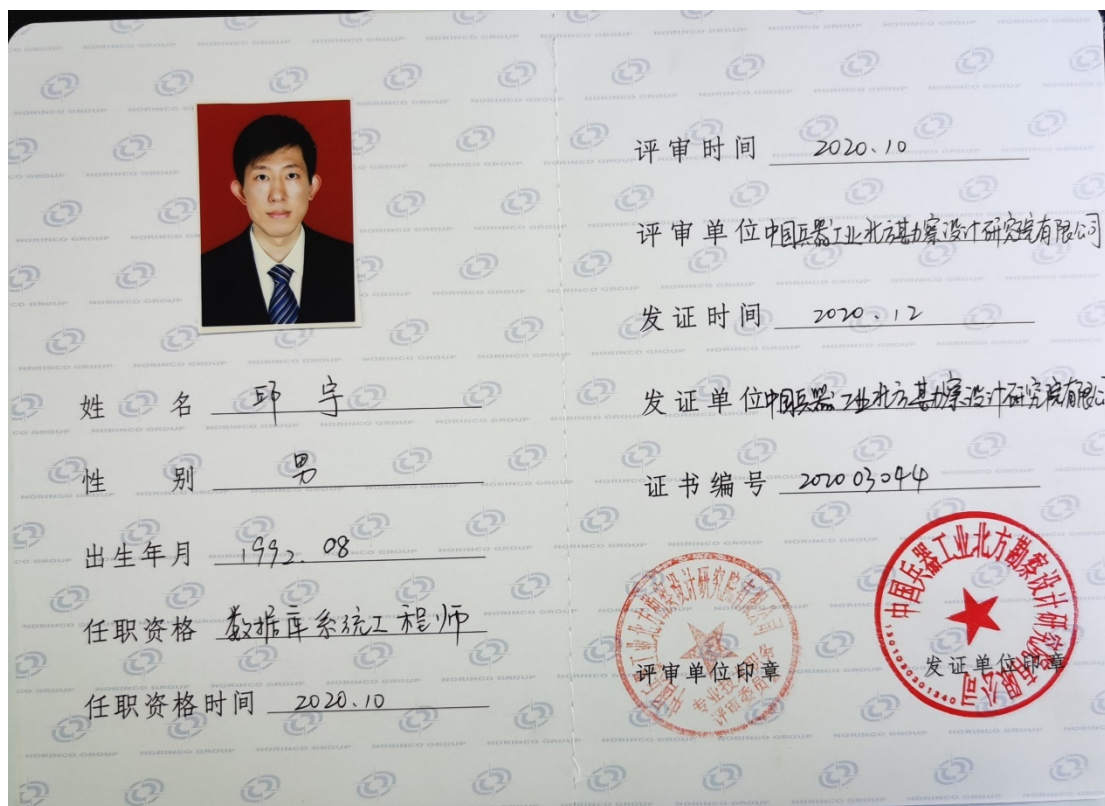 姓名 邱宇
性别 男
出生年月 1992.08
任职资格 数据库系统工程师
任职资格时间 2020.10
评审时间 2020.10
评审单位 中国兵器工业北方勘察设计研究院有限公司
发证时间 2020.12
发证单位 中国兵器工业北方勘察设计研究院有限公
证书编号 202003044
中国兵器工业北方勘察设计研究院有限公司
专业技术职务
评审委员会
评审单位印章
中国兵器工业北方勘察设计研究院有限公司
发证单位印章
1301080301340
NORINCO GROUP